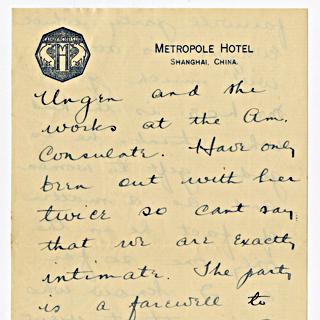 METROPOLE HOTEL
SHANGHAI, CHINA.
Ungen and she
works at the Am.
Consulate. Have only
been out with her
twice so cant say
that we are exactly
intimate. The party
is a farewell to